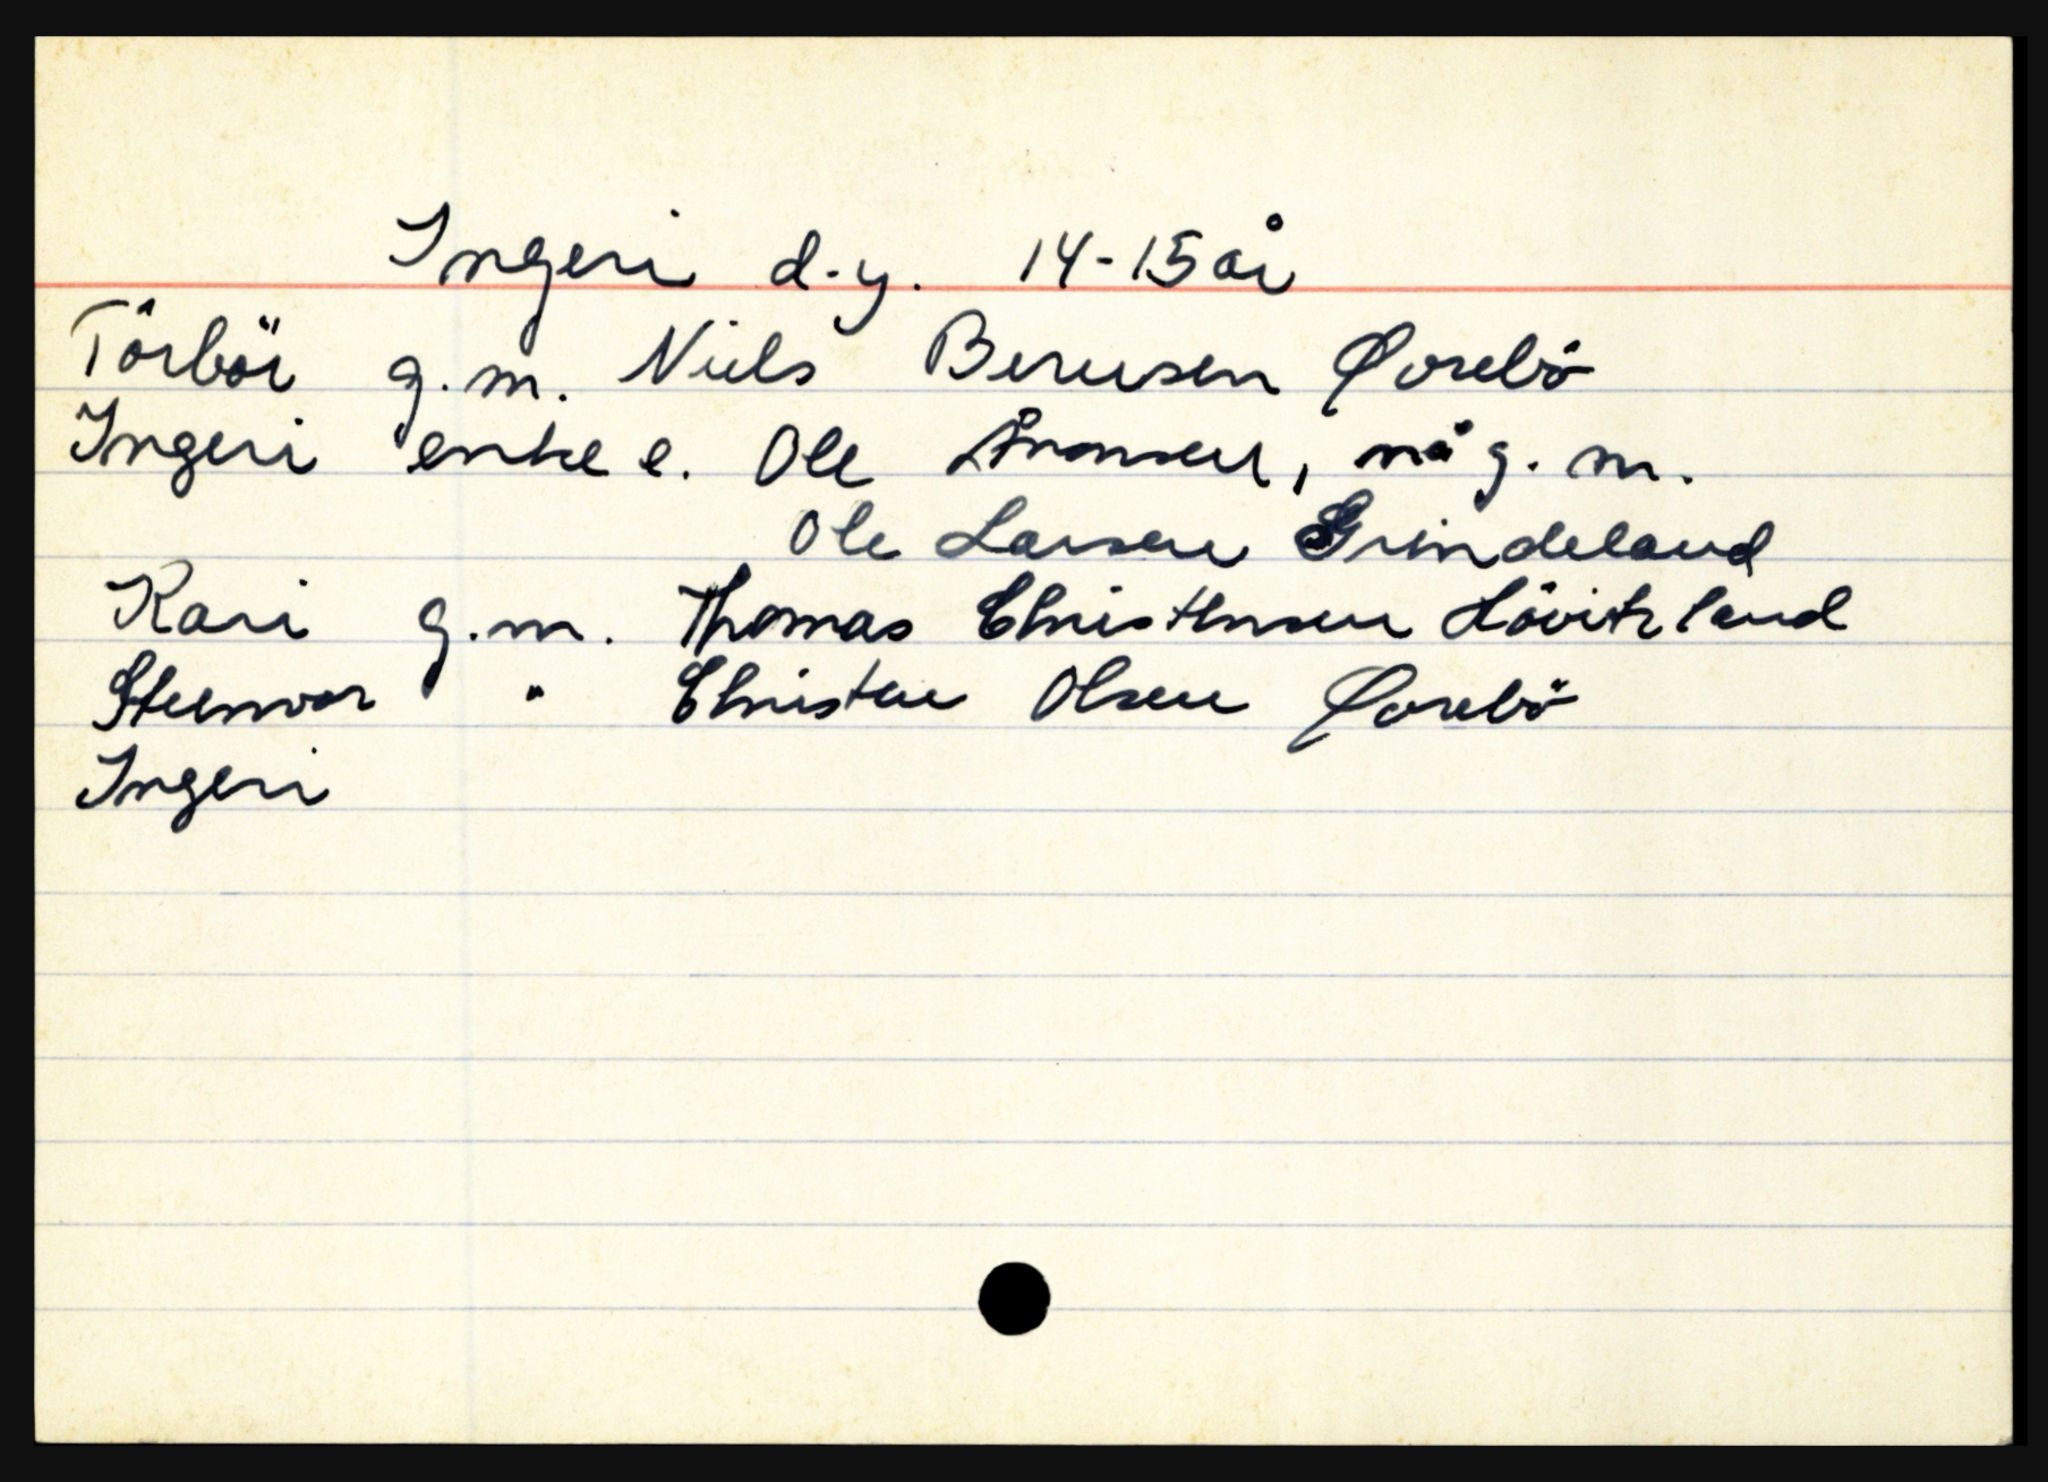 Ingeri d.y. 14-15 år
Torbör g.m. Niels Berusen Øvrebö
Ingeri enke e. Ole Aronsen, nå g.m.
Ole Larsen Grindeland
Kari g.m. Thomas Christensen Hövitzland
Steenvor " Christen Olsen Øvrebö
Ingeri